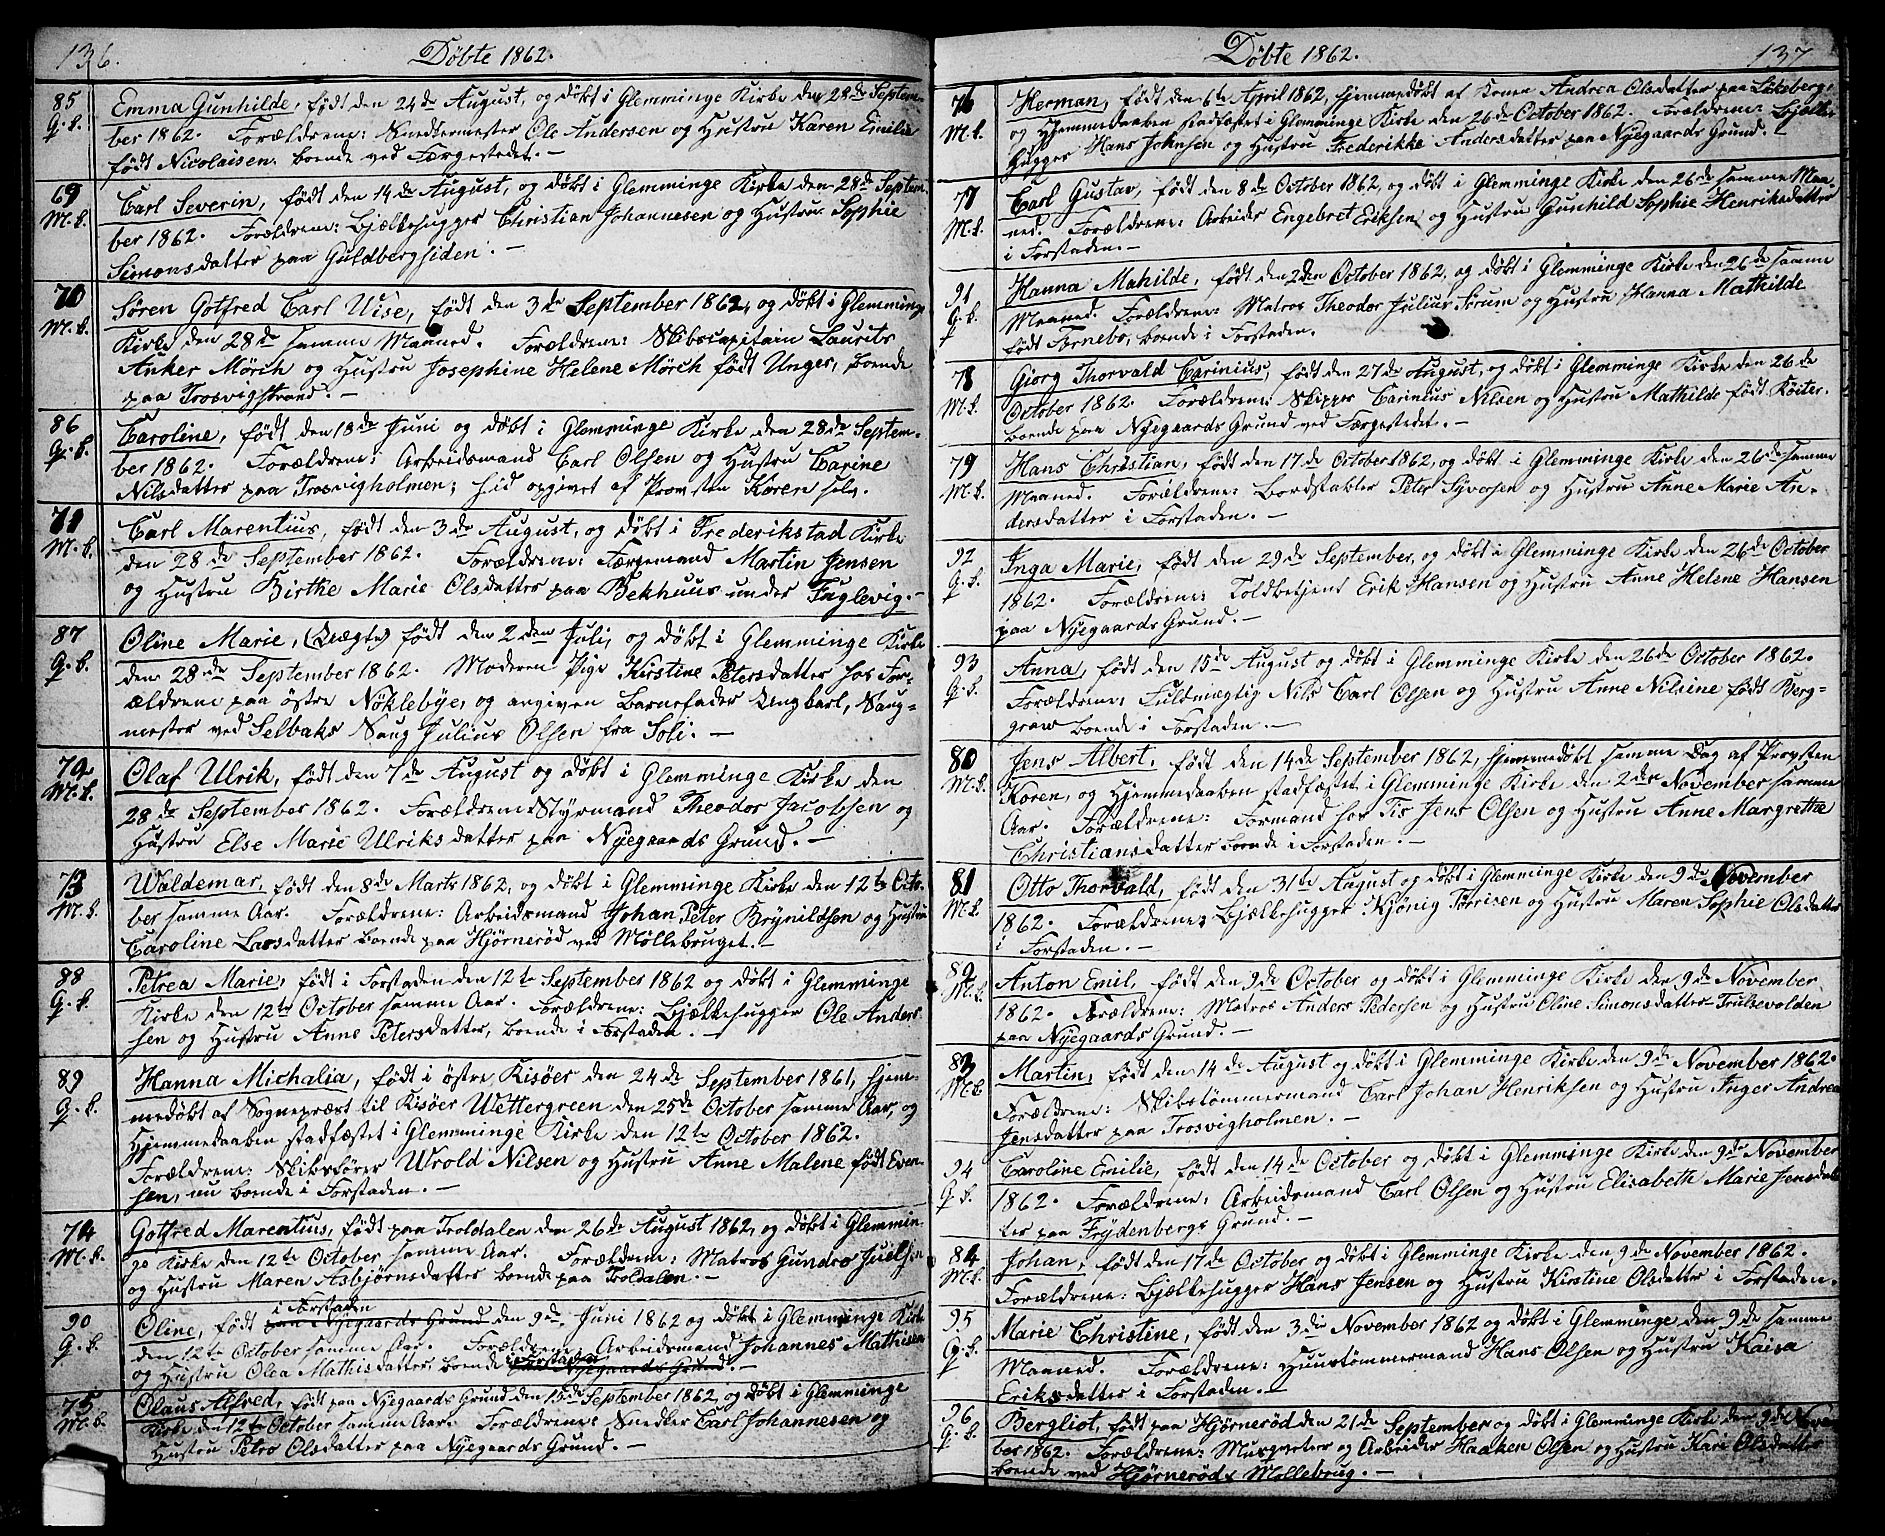 136.
Döbte 1862.
85
G. b.
Emma Gunhilde, født den 24de August, og døbt i Glemminge Kirke den 28de Septem-
ber 1862. Forældrene: Snedkermester Ole Andersen og Hustru Karen Emilie
født Nicolaisen, boende ved Færgestedet. —
69
M. b.
Carl Severin, født den 14de August, og døbt i Glemminge Kirke den 28de Septem-
ber 1862. Forældrene: Bjælkehugger Christian Johannesen og Hustru Sophie
Simonsdatter paa Guldbergsiden. —
70
M. b.
Sören Gotfred Carl Wise, født den 3de September 1862, og døbt i Glemminge
Kirke den 28de samme Maaned. Forældrene: Skibscapitain Laurits
Anker Mörch og Hustru Josephine Helene Mörch født Unger, boende
paa Trosvigstrand. —
86
G. b.
Caroline, født den 18de Juni og døbt i Glemminge Kirke den 28de Septem-
ber 1862. Forældrene: Arbeidsmand Carl Olsen og Hustru Carine
Nilsdatter paa Trosvigholmen; hid opgivet af Provsten Koren selv.
71
M. b.
Carl Marentius, født den 3de August, og døbt i Frederikstad Kirke
den 28de September 1862. Forældrene: Færgemand Martin Jensen
og Hustru Birthe Marie Olsdatter paa Bekhuus under Fuglevig. —
87
G. b.
Oline Marie, (Uægte) født den 2den Juli, og døbt i Glemminge Kirke
den 28de September 1862. Moderen Pige Kirstine Petersdatter hos For-
ældrene paa östre Nöklebye, og angiven Barnefader Ungkarl, Saug-
mester ved Selbaks Saug Julius Olsen fra Soli. —
72
M. b.
Olaf Ulrik, født den 7de August og døbt i Glemminge Kirke den
28de September 1862. Forældrene: Styrmand Theodor Jacobsen og
Hustru Else Marie Ulriksdatter paa Nyegaards Grund. —
73
M. b.
Waldemar, født den 8de Marts 1862, og døbt i Glemminge Kirke den 12te Octo-
ber samme Aar. Forældrene: Arbeidsmand Johan Peter Brynildsen og Hustru
Caroline Larsdatter boende paa Hjörneröd ved Möllebruget. —
88
G. b.
Petrea Marie, født i Forstaden den 12te September 1862 og døbt i Glemminge
Kirke den 12te October samme Aar. Forældrene: Bjælkehugger Ole Ander-
sen og Hustru Anne Petersdatter, boende i Forstaden. —
89
G. b.
Hanna Michalia, født i östre Risöer den 24de September 1861, hjem-
medøbt af Sognepræst til Risöer Wettergreen den 25de October samme Aar, og
Hjemmedaaben stadfæstet i Glemminge Kirke den 12te October 1862.
Forældrene: Skibsfører Urold Nilsen og Hustru Anne Malene født Even-
sen, nu boende i Forstaden. —
74
M. b.
Gotfred Marentius, født paa Troldalen den 26de August 1862, og døbt i Glemmin-
ge Kirke den 12te October samme Aar. Forældrene: Matros Gundro Juelsen
og Hustru Maren Asbjørnsdatter boende paa Troldalen. —
90
G. b.
i Forstaden
Oline, født paa Nyegaards Grund den 9de Juni 1862 og døbt i Glemminge Kirke
den 12te October samme Aar. Forældrene: Arbeidsmand Johannes Mathisen
og Hustru Olea Mathisdatter, boende i Forstaden paa Nyegaards Grund. —
75
M. b.
Olaus Alfred, født paa Nyegaards Grund den 15de September 1862, og døbt i Glemminge
Kirke den 12te October samme Aar. Forældrene: Snedker Carl Johannesen og
Hustru Petro Olsdatter paa Nyegaards Grund. —
Döbte 1862.
137
76
M. b.
Herman, født den 6te April 1862, hjemmedøbt af Konen Andrea Olsdatter paa Lökeberg,
og Hjemmedaaben stadfæstet i Glemminge Kirke den 26de October 1862. Forældrene: Bjælke-
hugger Hans Johnsen og Hustru Frederikke Andersdatter paa Nyegaards Grund. —
77
M. b.
Carl Gustav, født den 8de October 1862, og døbt i Glemminge Kirke den 26de samme Maa-
ned. Forældrene: Arbeider Engebret Eriksen og Hustru Gunhild Sophie Henriksdatter
i Forstaden. —
91
G. b.
Hanna Mahilde, født den 2den October 1862, og døbt i Glemminge Kirke den 26de samme
Maaned. Forældrene: Matros Theodor Julius Strum og Hustru Hanna Mathilde
født Fornebo, boende i Forstaden.
78
M. b.
Giorg Thorvald Carinius, født den 27de August, og døbt i Glemminge Kirke den 26de
October 1862. Forældrene: Skipper Carinius Nilsen og Hustru Mathilde født Köster-
boende paa Nyegaards Grund ved Færgestedet. —
79
M. b.
Hans Christian, født den 17de October 1862, og døbt i Glemminge Kirke den 26de samme
Maaned. Forældrene: Bordstabler Peter Syversen og Hustru Anne Marie An-
dersdatter i Forstaden. —
92
G. b.
Inga Marie, født den 29de September, og døbt i Glemminge Kirke den 26de October
1862. Forældrene: Toldbetjent Erik Hansen og Hustru Anne Helene Hansen
paa Nyegaards Grund. —
93
G. b.
Anna, født den 15de August og døbt i Glemminge Kirke den 26de October 1862.
Forældrene: Fuldmægtig Nils Carl Olsen og Hustru Anne Nilsine født Berg-
graw boende i Forstaden. —
80
M. b.
Jens Albert, født den 14de September 1862, hjemmedøbt samme Dag af Provsten
Koren, og Hjemmedaaben stadfæstet i Glemminge Kirke den 2den November samme
Aar. Forældrene: Formand hos Tis Jens Olsen og Hustru Anne Margrethe
Christiansdatter boende i Forstaden. —
81
M. b.
Otto Thorvald, født den 31te August og døbt i Glemminge Kirke den 9de November
1862. Forældrene: Bjælkehugger Kjönig Torrisen og Hustru Maren Sophie Olsdatter
i Forstaden. —
82
M. b.
Anton Emil, født den 9de October og døbt i Glemminge Kirke den 9de November
1862. Forældrene: Matros Anders Pedersen og Hustru Oline Simonsdatter Trulsevolden
paa Nyegaards Grund. —
83
M. b.
Martin, født den 14de August og døbt i Glemminge Kirke den 9de November 1862.
Forældrene: Skibstömmermand Carl Johan Henriksen og Hustru Inger Andrea
Jensdatter paa Trosvigholmen. —
94
G. b.
Caroline Emilie, født den 14de October og døbt i Glemminge Kirke den 9de November
1862. Forældrene: Arbeidsmand Carl Olsen og Hustru Elisabeth Marie Jensdat-
ter paa Frydenbergs Grund. —
84
M. b.
Johan, født den 17de October og døbt i Glemminge Kirke den 9de November 1862.
Forældrene: Bjælkehugger Hans Jensen og Hustru Kirstine Olsdatter i Forstaden.
95
G. b.
Marie Christine, født den 3die November 1862 og døbt i Glemminge den 9de samme
Maaned. Forældrene: Huustömmermand Hans Olsen og Hustru Kaisa
Eriksdatter i Forstaden. —
96
G. b.
Bergliot, født paa Hjörneröd den 21de September og døbt i Glemminge Kirke den 9de Novem-
ber 1862. Forældrene: Murmester og Arbeider Haaken Olsen og Hustru Kari Olsdatter
boende ved Hjörneröds Möllebrug. —